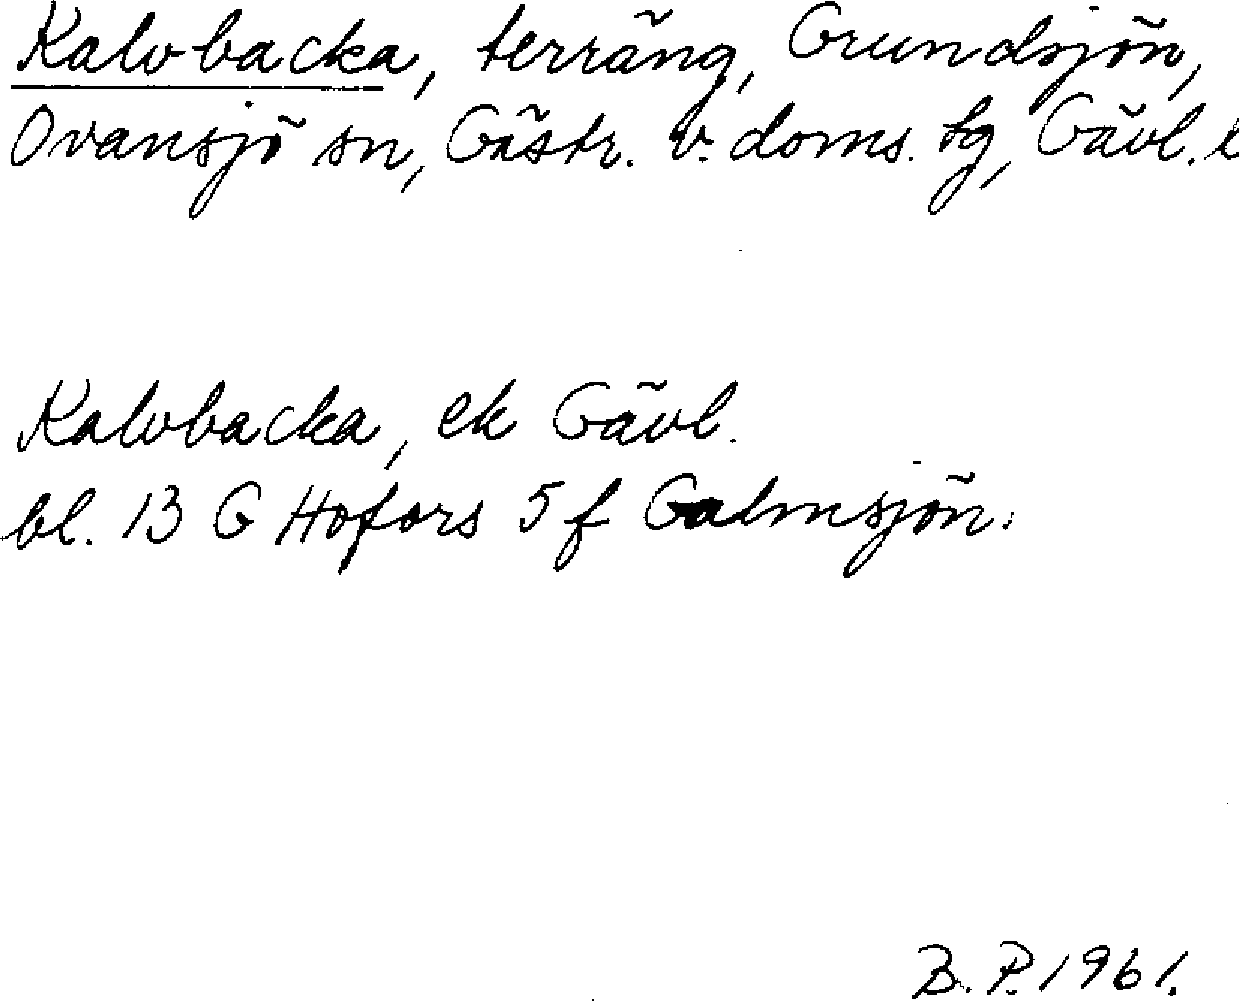 Kalvbacka, terräng, Grundsjön,
Ovansjö sn, Gästr. v. doms. tg, Gävl. l
Kalvbacka, ek Gävl.
bl. 13 G Hofors 5 f Galmsjön.
B. P. 1961.